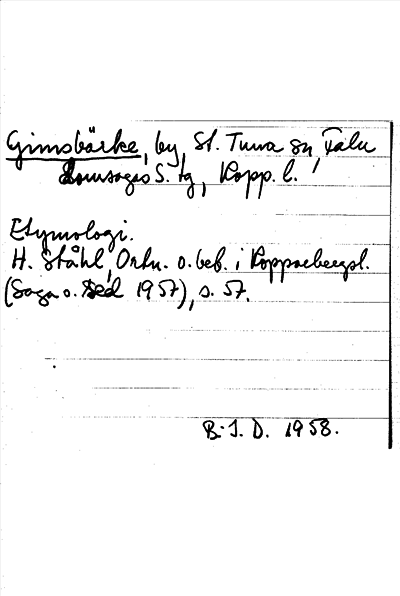 Gimsbärke, by, St. Tuna sn, Falu
Domsagas S. tg, Kopp. l.
Etymologi.
H. Ståhl, Ortn. o. beb. i Kopparbergsl.
(Saga o. Sed 1957), s. 57.
B. I. D. 1958.